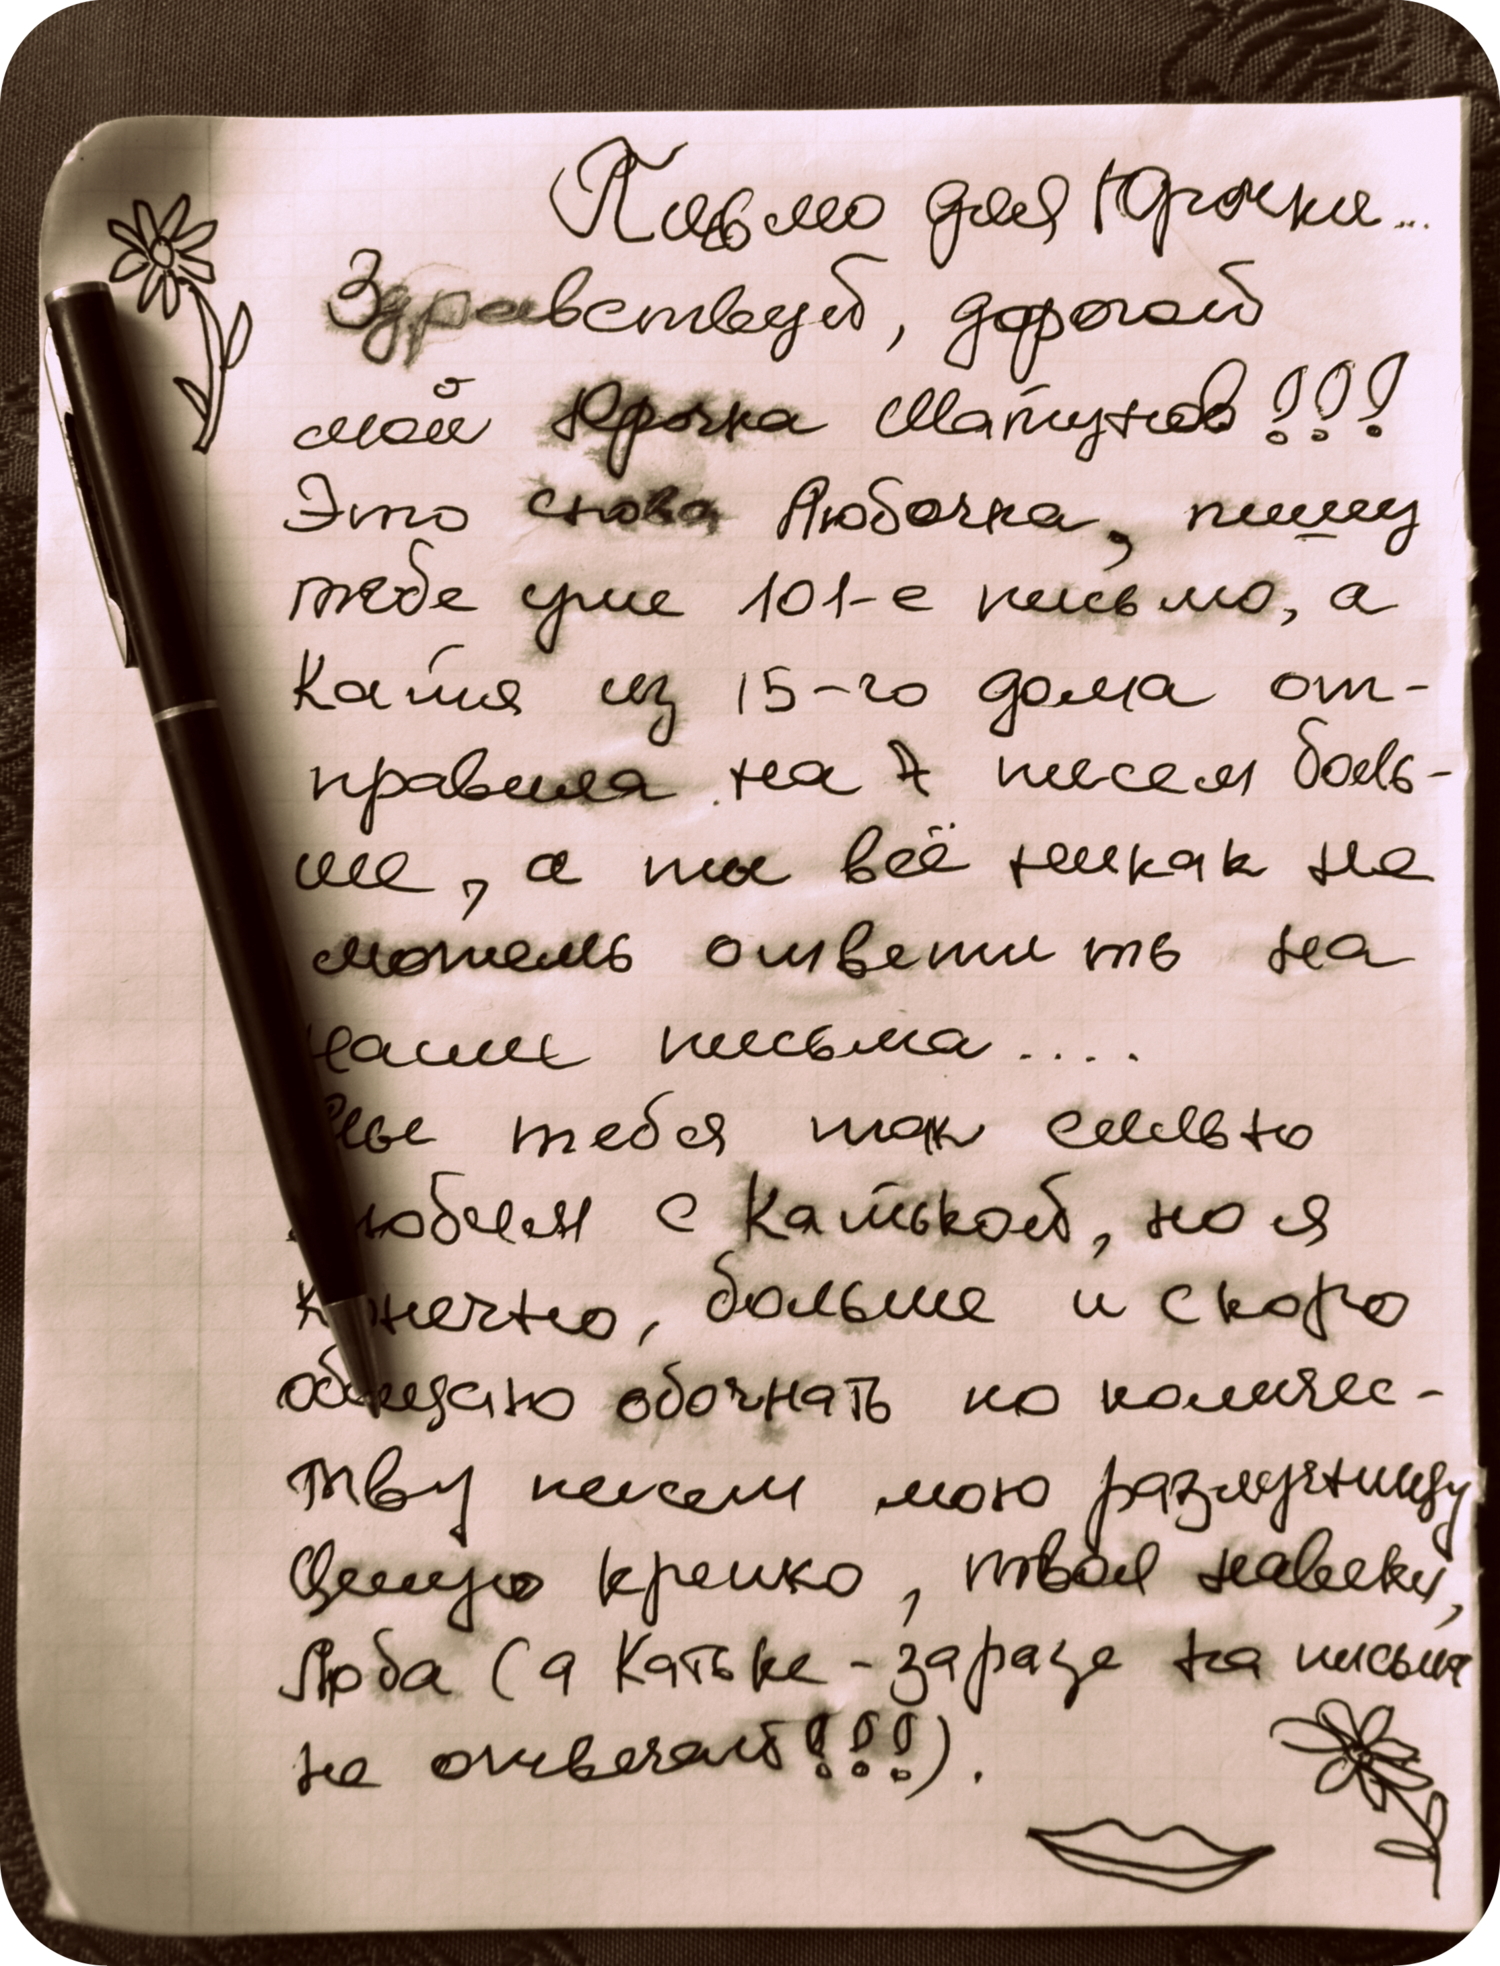 Письмо для Юрочки...
Здравствуй, дорогой
мой Юрочка Матунов!!!
Это снова Любочка, пишу
тебе уже 101-е письмо, а
Катя из 15-го дома от-
правила на 7 писем боль-
ше, а ты всё никак не
можешь ответить на
наши письма....
Мы тебя так сильно
любим с Катькой, но я
конечно, больше и скоро
обещаю обогнать по количес-
тву писем мою разлучницу
Целую крепко, твоя навеки,
Люба (а Катьке - заразе на письма
не отвечай!!!).